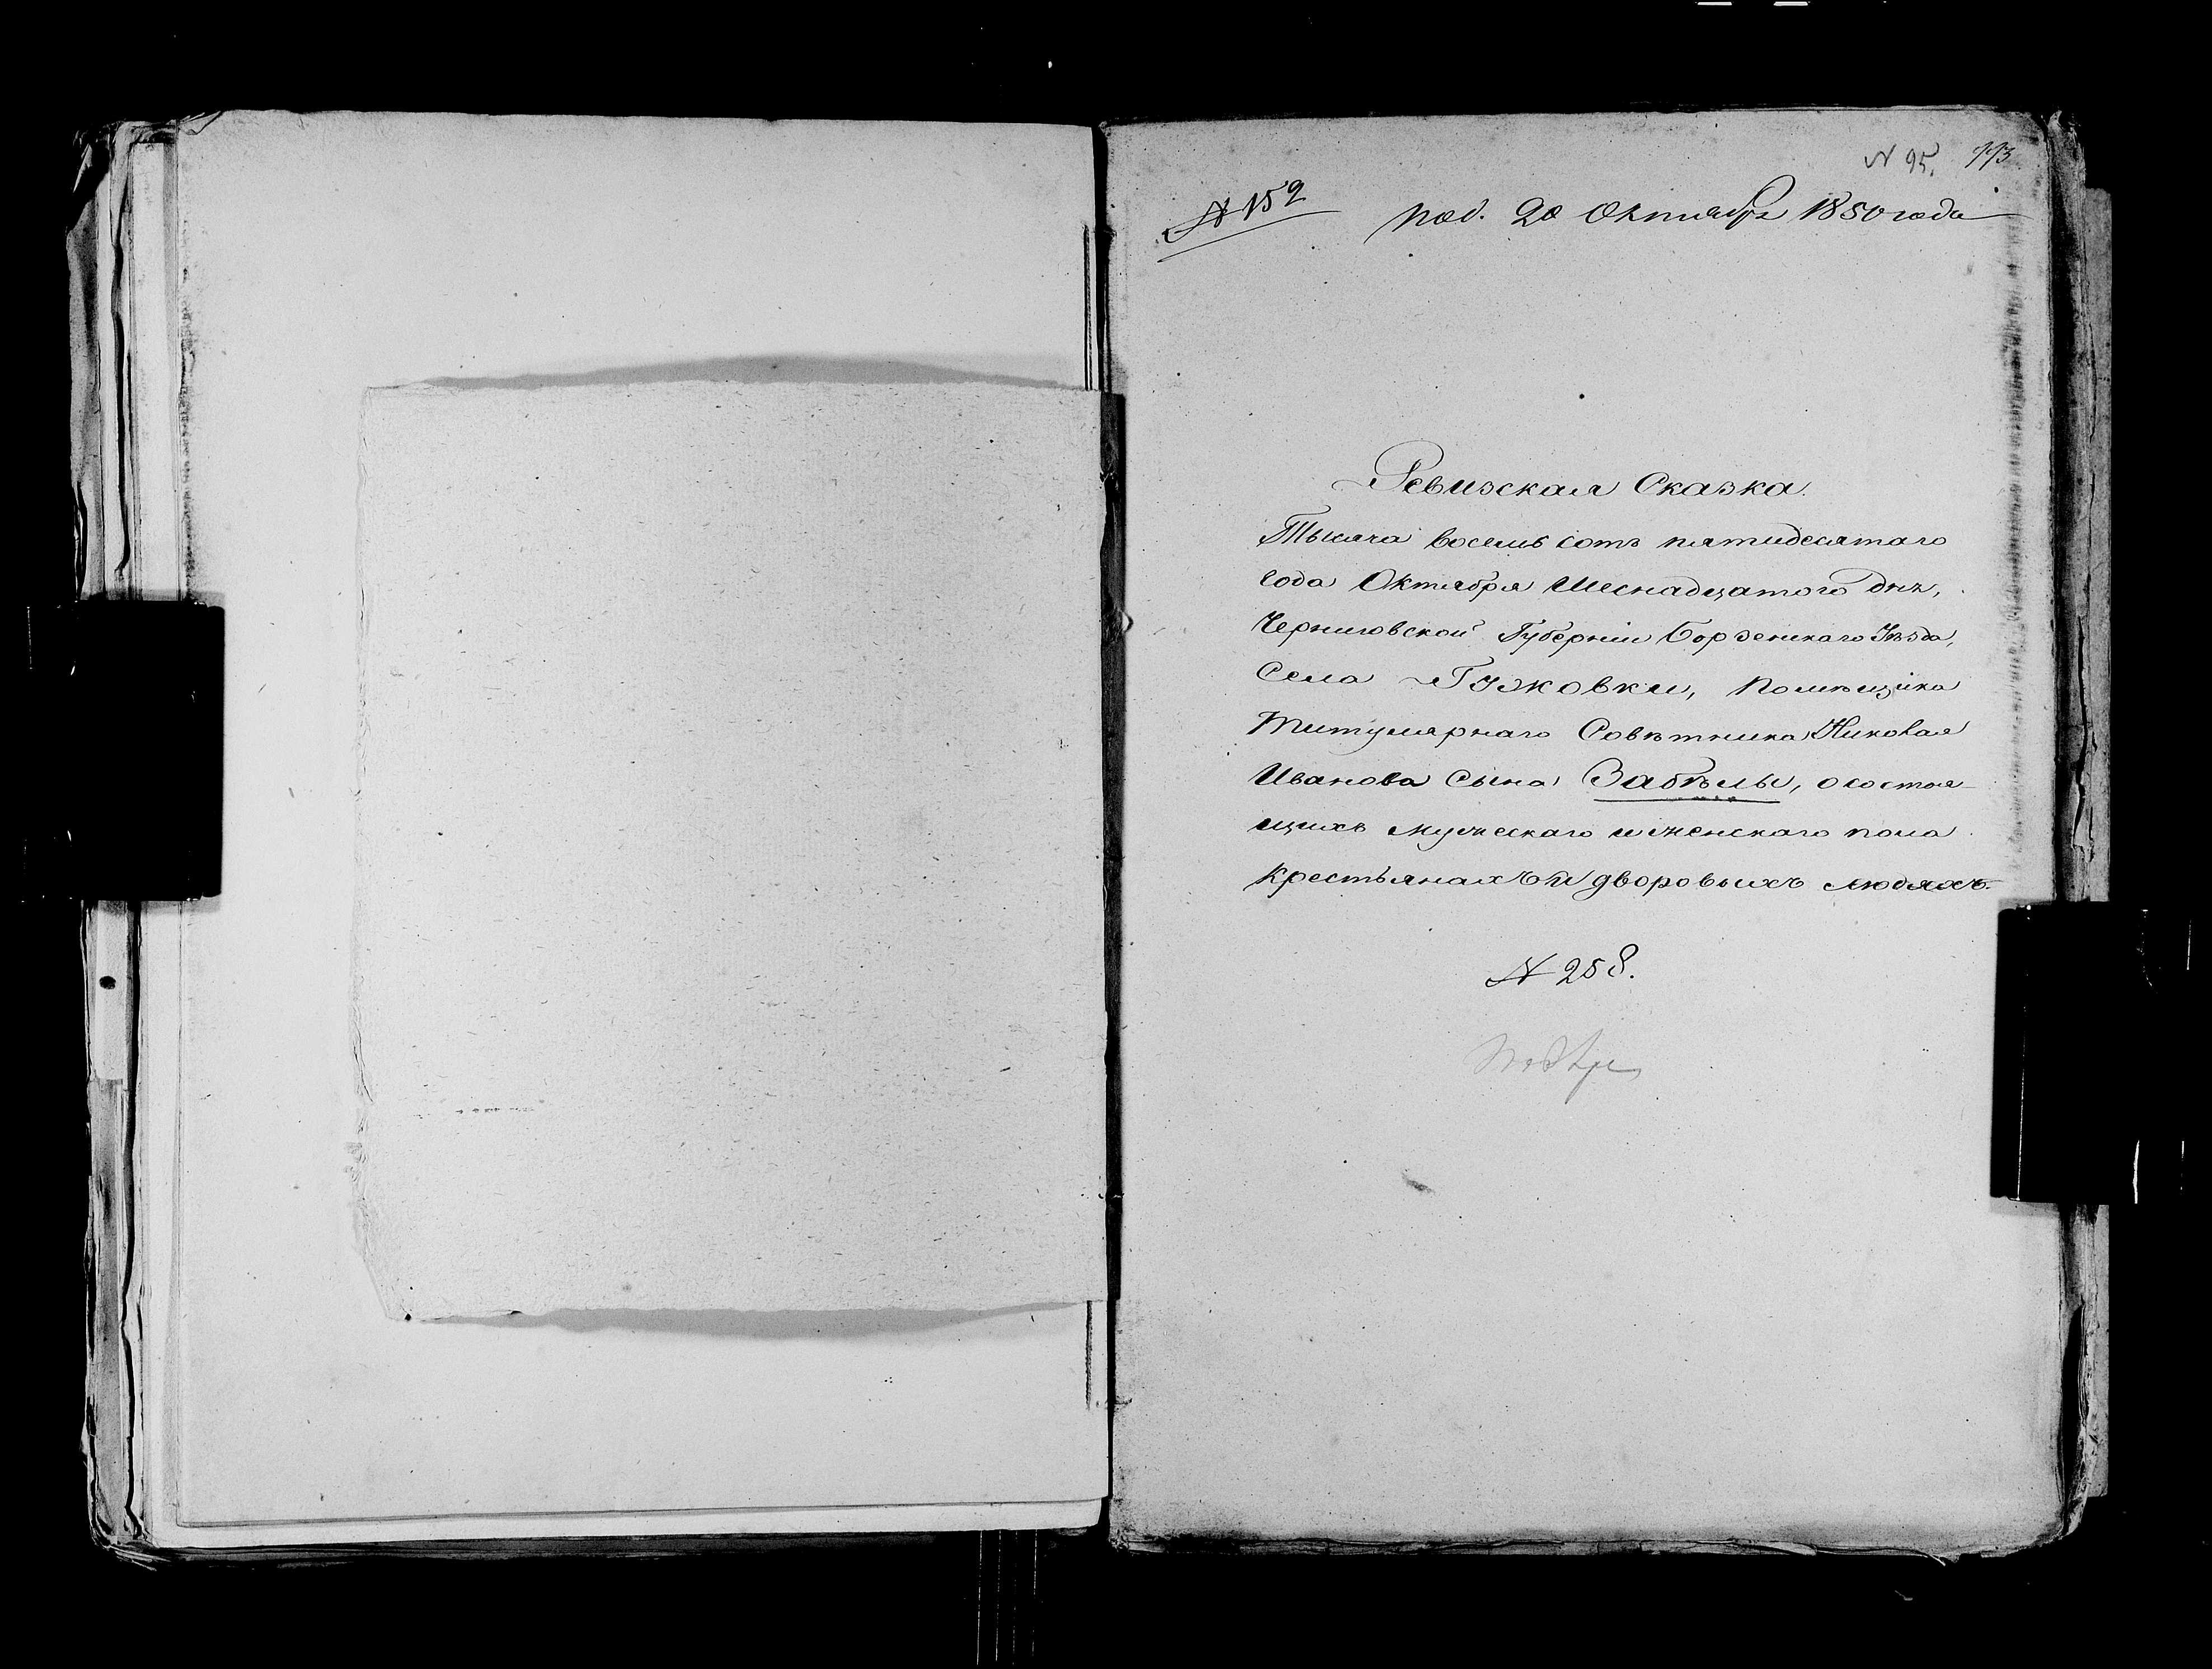 N 95. 113
№ 152 под. 20 Октября 1850 года
Ревизская Сказка.
Тысяча восемь сотъ пятидесятаго
года Октября Шеснадцатого дня,
Черниговской Губерніи Борзенскаго Уѣзда,
Села Гужовки, Помѣщика
Титулярнаго Совѣтника Николая
Иванова Сына Забѣлы, о состоя-
щихъ мужескаго и женскаго пола
крестьянахъ и дворовыхъ людяхъ.
N 258.